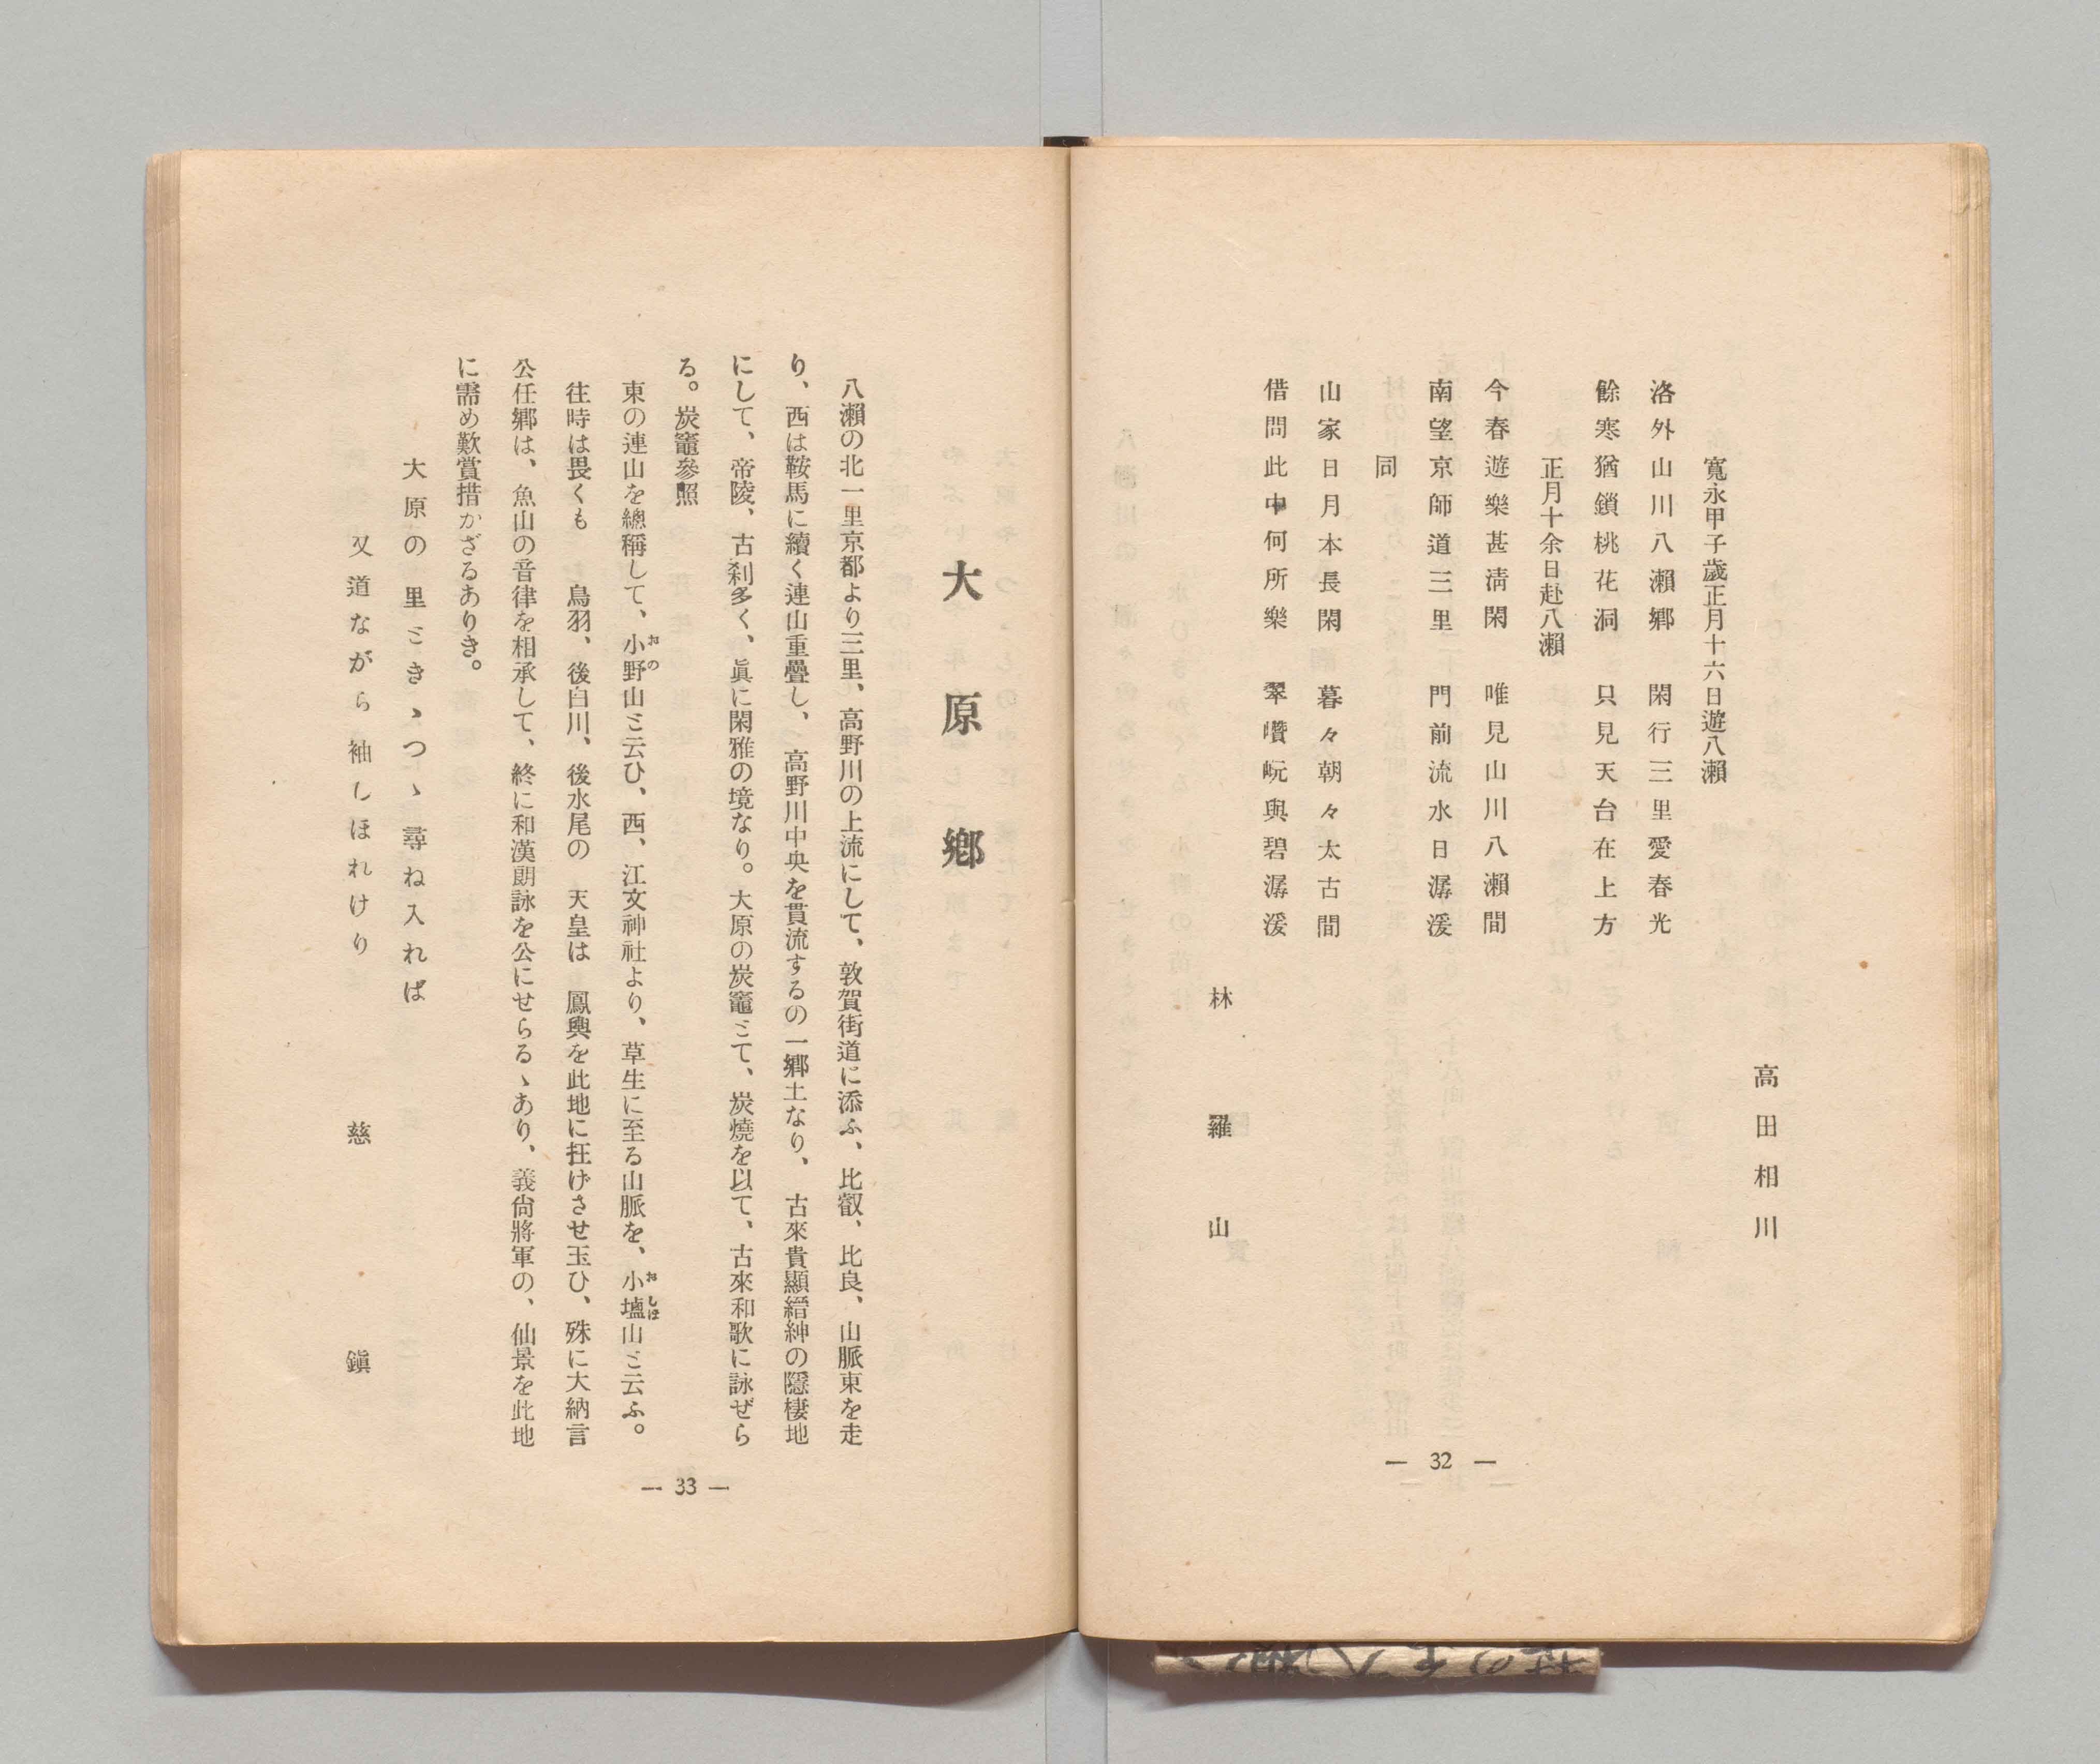 高田相川
寬永甲子歲正月十六日遊八瀨
洛外山川八瀨鄕　閑行三里愛春光
餘寒猶鎖桃花洞　只見天台在上方
正月十余日赴八瀨
今春遊樂甚淸閑　唯見山川八瀨間
南望京師道三里　門前流水日潺湲
同
山家日月本長閑　暮々朝々太古間
借問此中何所樂　翠巑岏與碧潺湲
林羅山
― 32 ―
大原鄕
八瀨の北一里京都より三里、高野川の上流にして、敦賀街道に添ふ、比叡、比良、山脈東を走
り、西は鞍馬に續く連山重疊し、高野川中央を貫流するの一鄕土なり、古來貴顯縉紳の隱棲地
にして、帝陵、古刹多く、眞に閑雅の境なり。大原の炭竈ミて、炭燒を以て、古來和歌に詠ぜら
る。炭竈參照
東の連山を總稱して、小野山ミ云ひ、西、江文神社より、草生に至る山脈を、小塩山ミ云ふ。
おの
おしほ
往時は畏くも　鳥羽、後白川、後水尾の　天皇は　鳳輿を此地に抂げさせ玉ひ、殊に大納言
公任鄕は、魚山の音律を相承して、終に和漢朗詠を公にせらるゝあり、義尙將軍の、仙景を此地
に需め歎賞措かざるありき。
大原の里ミきゝつゝ尋ね入れば
又道ながら袖しほれけり　慈鎭
― 33 ―